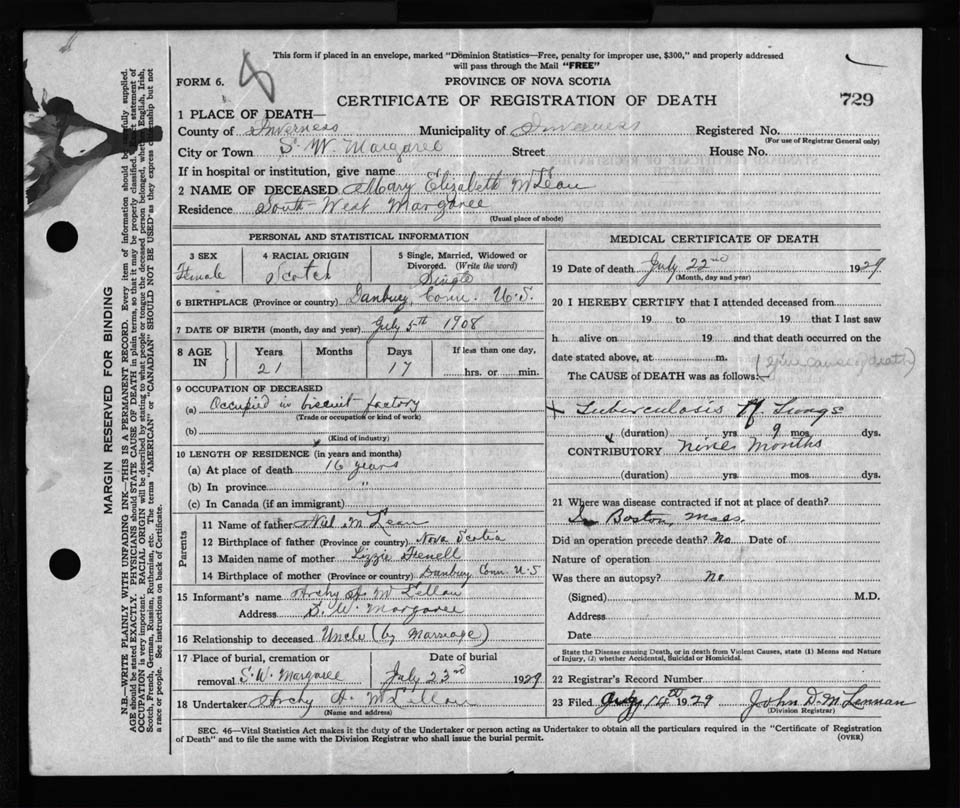 This form if placed in an envelope, marked "Dominion Statistics—Free, penalty for improper use, $300," and properly addressed
will pass through the Mail "FREE"
FORM 6.
PROVINCE OF NOVA SCOTIA
CERTIFICATE OF REGISTRATION OF DEATH
729
1 PLACE OF DEATH—
County of Inverness Municipality of Inverness Registered No.
(For use of Registrar General only)
City or Town S. W. Margaree Street House No.
If in hospital or institution, give name
2 NAME OF DECEASED Mary Elizabeth McLean
Residence South-West Margaree
(Usual place of abode)
PERSONAL AND STATISTICAL INFORMATION
3 SEX
Female
4 RACIAL ORIGIN
Scotch
5 Single, Married, Widowed or
Divorced. (Write the word)
Single
6 BIRTHPLACE (Province or country) Danbury, Conn. U.S.
7 DATE OF BIRTH (month, day and year) July 5th 1908
8 AGE IN
Years 21
Months
Days 17
If less than one day,
hrs. or min.
9 OCCUPATION OF DECEASED
(a) Occupied in biscuit factory
(Trade or occupation or kind of work)
(b)
(Kind of industry)
10 LENGTH OF RESIDENCE (in years and months)
(a) At place of death 16 years
(b) In province "
(c) In Canada (if an immigrant)
Parents
11 Name of father Neil McLean
12 Birthplace of father (Province or country) Nova Scotia
13 Maiden name of mother Lizzie
14 Birthplace of mother (Province or country) Danbury Conn. U.S
15 Informant's name Archy A. McLellan
Address S. W. Margaree
16 Relationship to deceased Uncle (by Marriage)
17 Place of burial, cremation or
removal S. W. Margaree
Date of burial
July 23rd 1929
18 Undertaker Archy A. McLellan
(Name and address)
MEDICAL CERTIFICATE OF DEATH
19 Date of death July 22nd 1929
(Month, day and year)
20 I HEREBY CERTIFY that I attended deceased from
19 to 19 that I last saw
h alive on 19 and that death occurred on the
date stated above, at m.
(Give cause of death)
The CAUSE of DEATH was as follows:
Tuberculosis of Lungs
(duration) yrs. 9 mos. dys.
CONTRIBUTORY Nine Months
(duration) yrs. mos. dys.
21 Where was disease contracted if not at place of death?
In Boston, Mass.
Did an operation precede death? No Date of
Nature of operation
Was there an autopsy? No
(Signed) M.D.
Address
Date
State the Disease causing Death, or in death from Violent Causes, state (1) Means and Nature
of Injury, (2) whether Accidental, Suicidal or Homicidal.
22 Registrar's Record Number
23 Filed 14th 1929 John D. McLennan
(Division Registrar)
SEC. 46—Vital Statistics Act makes it the duty of the Undertaker or person acting as Undertaker to obtain all the particulars required in the "Certificate of Registration
of Death" and to file the same with the Division Registrar who shall issue the burial permit.
(OVER)
MARGIN RESERVED FOR BINDING
N.B.—WRITE PLAINLY WITH UNFADING INK—THIS IS A PERMANENT RECORD. Every item of information should be carefully supplied.
AGE should be stated EXACTLY. PHYSICIANS should STATE CAUSE OF DEATH in plain terms, so that it may be properly classified. Exact statement of
OCCUPATION is very important. RACIAL ORIGIN will be described by stating to what people or tongue the deceased person belonged, whether English, Irish,
Scotch, French, German, Russian, Ruthenian, etc. The terms "AMERICAN" or "CANADIAN" SHOULD NOT BE USED as they express citizenship but not
a race or people. See instructions on back of Certificate.